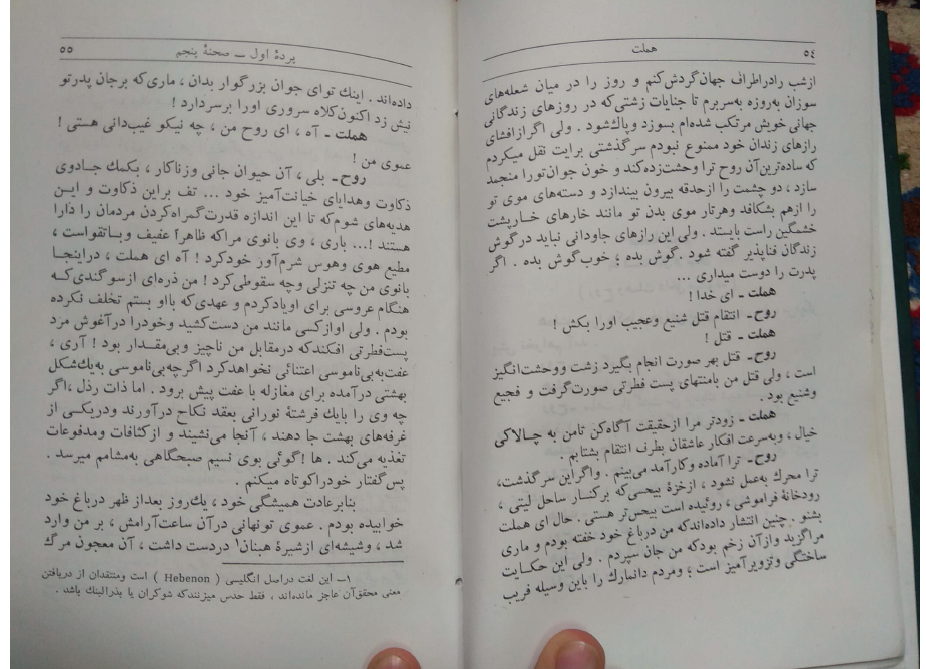 ٥٤
هملت
ازشب رادراطراف جهان‌گردش‌کنم و روز را در میان شعله‌های
سوزان به‌روزه به‌سربرم تا جنایات زشتی‌که در روزهای زندگانی
جهانی خویش مرتکب شده‌ام بسوزد و پاك‌شود . ولی اگر ازافشای
رازهای زندان خود ممنوع نبودم سرگذشتی برایت نقل میکردم
که ساده‌ترین‌آن روح ترا وحشت‌زده‌کند و خون جوان‌تورا منجمد
سازد ، دو چشمت را ازحدقه بیرون بیندازد و دسته‌های موی تو
را ازهم بشکافد وهرتار موی بدن تو مانند خارهای خارپشت
خشمگین راست بایستد . ولی این رازهای جاودانی نباید درگوش
زندگان فناپذیر گفته شود . گوش بده ؛ خوب‌گوش بده . اگر
پدرت را دوست میداری ...
هملت ـ ای خدا !
روح- انتقام قتل شنیع وعجیب اورا بکش !
هملت - قتل !
روح- قتل بهر صورت انجام بگیرد زشت ووحشت‌انگیز
است ، ولی قتل من بامنتهای پست فطرتی صورت‌گرفت و فجیع
وشنیع بود .
هملت - زودتر مرا ازحقیقت آگاه‌کن تامن به چالاکی
خیال ، وبه‌سرعت افکار عاشقان بطرف انتقام بشتابم .
روح- ترا آماده وکارآمد می‌بینم . واگراین سرگذشت،
ترا محرك به‌عمل نشود ، ازخزهٔ بیحسی‌که برکنار ساحل لیتی ،
رودخانهٔ فراموشی ، روئیده است بیحس‌تر هستی . حال ای هملت
بشنو . چنین انتشار داده‌اندکه من درباغ خود خفته بودم و ماری
مراگزید وازآن زخم بودکه من جان سپردم . ولی این حکایت
ساختگی وتزویرآمیز است ؛ ومردم دانمارك را باین وسیله فریب
پردهٔ اول ــ صحنهٔ پنجم
٥٥
داده‌اند . اینك توای جوان بزرگوار بدان ، ماری‌که برجان پدرتو
نیش زد اکنون‌کلاه سروری اورا برسردارد !
هملت- آه ، ای روح من ، چه نیکو غیب‌دانی هستی !
عموی من !
روح- بلی ، آن حیوان جانی وزناکار ، بکمك جادوی
ذکاوت وهدایای خیانت‌آمیز خود ... تف براین ذکاوت و این
هدیه‌های شوم‌که تا این اندازه قدرت‌گمراه‌کردن مردمان را دارا
هستند !... باری ، وی بانوی مراکه ظاهراً عفیف وباتقواست ،
مطیع هوی وهوس شرم‌آور خودکرد ! آه ای هملت ، دراینجا
بانوی من چه تنزلی وچه سقوطی‌کرد ! من ذره‌ای ازسوگندی‌که
هنگام عروسی برای اویادکردم و عهدی‌که بااو بستم تخلف نکرده
بودم . ولی اوازکسی مانند من دست‌کشید وخودرا درآغوش مرد
پست‌فطرتی افکندکه درمقابل من ناچیز وبی‌مقدار بود ! آری ،
عفت‌به‌بی‌ناموسی اعتنائی نخواهدکرد اگرچه‌بی‌ناموسی به‌یك‌شکل
بهشتی درآمده برای مغازله با عفت پیش برود . اما ذات رذل ،اگر
چه وی را بایك فرشتهٔ نورانی بعقد نکاح درآورند ودریکی از
غرفه‌های بهشت جا دهند ، آنجا می‌نشیند و ازکثافات ومدفوعات
تغذیه می‌کند . ها !گوئی بوی نسیم صبحگاهی به‌مشامم میرسد .
پس‌گفتار خودراکوتاه میکنم .
بنابرعادت همیشگی خود ، یك‌روز بعداز ظهر درباغ خود
خوابیده بودم . عموی تونهانی درآن ساعت‌آرامش ، بر من وارد
شد ، وشیشه‌ای ازشیرهٔ هبنان۱ دردست داشت ، آن معجون مرگ
۱ــ این لغت دراصل انگلیسی ( Hebenon ) است ومنتقدان از دریافتن
معنی محقق‌آن عاجز مانده‌اند ، فقط حدس میزنندکه شوکران یا بذرالبنك باشد .